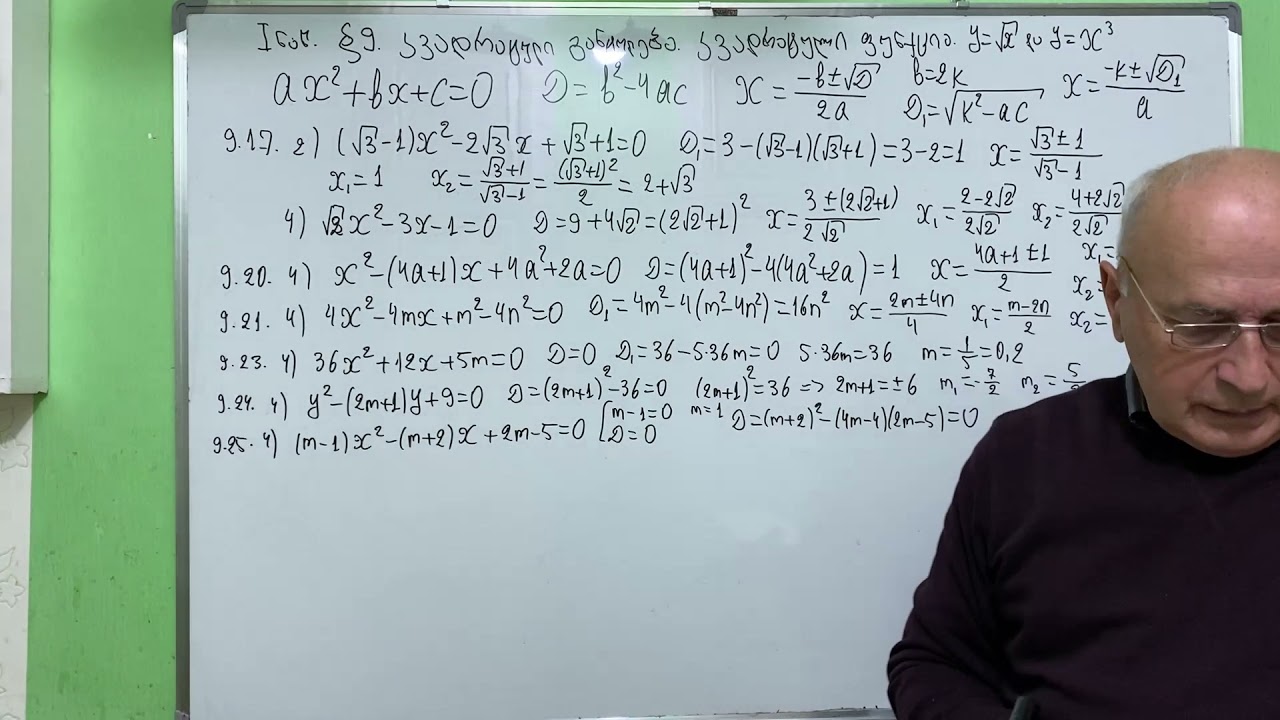 I ნაწ. §9. კვადრატული განტოლება. კვადრატული ფუნქცია. y=√x და y=x³
ax²+bx+c=0 D=b²-4ac x=(-b±√D)/2a b=2k D₁=√(k²-ac) x=(-k±√D₁)/a
9.17. 2) (√3-1)x²-2√3x+√3+1=0 D₁=3-(√3-1)(√3+1)=3-2=1 x=(√3±1)/(√3-1)
x₁=1 x₂=(√3+1)/(√3-1)=(√3+1)²/2=2+√3
4) √2x²-3x-1=0 D=9+4√2=(2√2+1)² x=(3±(2√2+1))/2√2 x₁=(2-2√2)/2√2 x₂=(4+2√2)/2√2
9.20. 4) x²-(4a+1)x+4a²+2a=0 D=(4a+1)²-4(4a²+2a)=1 x=(4a+1±1)/2 x₁= x₂=
9.21. 4) 4x²-4mx+m²-4n²=0 D₁=4m²-4(m²-4n²)=16n² x=(2m±4n)/4 x₁=(m-2n)/2 x₂=
9.23. 4) 36x²+12x+5m=0 D=0 D₁=36-5·36m=0 5·36m=36 m=1/5=0,2
9.24. 4) y²-(2m+1)y+9=0 D=(2m+1)²-36=0 (2m+1)²=36 => 2m+1=±6 m₁=-7/2 m₂=5/
9.25. 4) (m-1)x²-(m+2)x+2m-5=0 [m-1=0 D=0 m=1 D=(m+2)²-(4m-4)(2m-5)=0